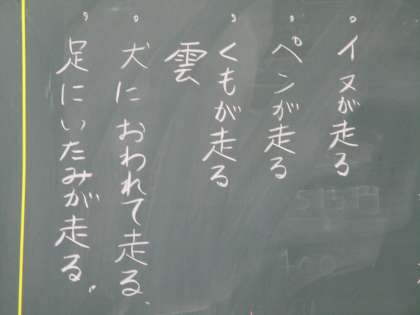 イヌが走る
ペンが走る
くもが走る
雲
犬におわれて走る、
足にいたみが走る。